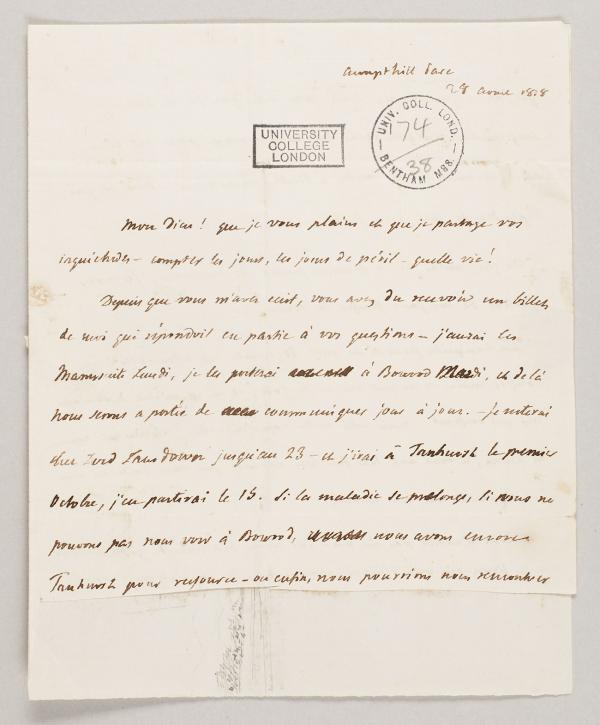 ampthill Parc
28 1818
UNIVERSITY
COLLEGE
LONDON
UNIV. COLL. LOND.
174
38
BENTHAM MSS.
Mon Dieu! que je vous plains et que je partage vos
inquietudes - compter les jours, les jours de péril - quelle vie!
Depuis que vous m'avez écrit, vous avez du recevoir un billet
de moi qui répondoit en partie à vos questions - j'aurai les
Manuscrits Lundi, je les porterai à Bowood Mardi, et de là
nous serons a portée de communiquer jour à jour. - je resterai
chez Lord Lansdown jusqu'au 23 - et j'irai à Tanhurst le premier
Octobre, j'en partirai le 15. Si la maladie se prolonge, si nous ne
pouvons pas nous voir à Bowood, nous avons encore
Tanhurst pour ressource - ou enfin, nous pourrions nous rencontrer